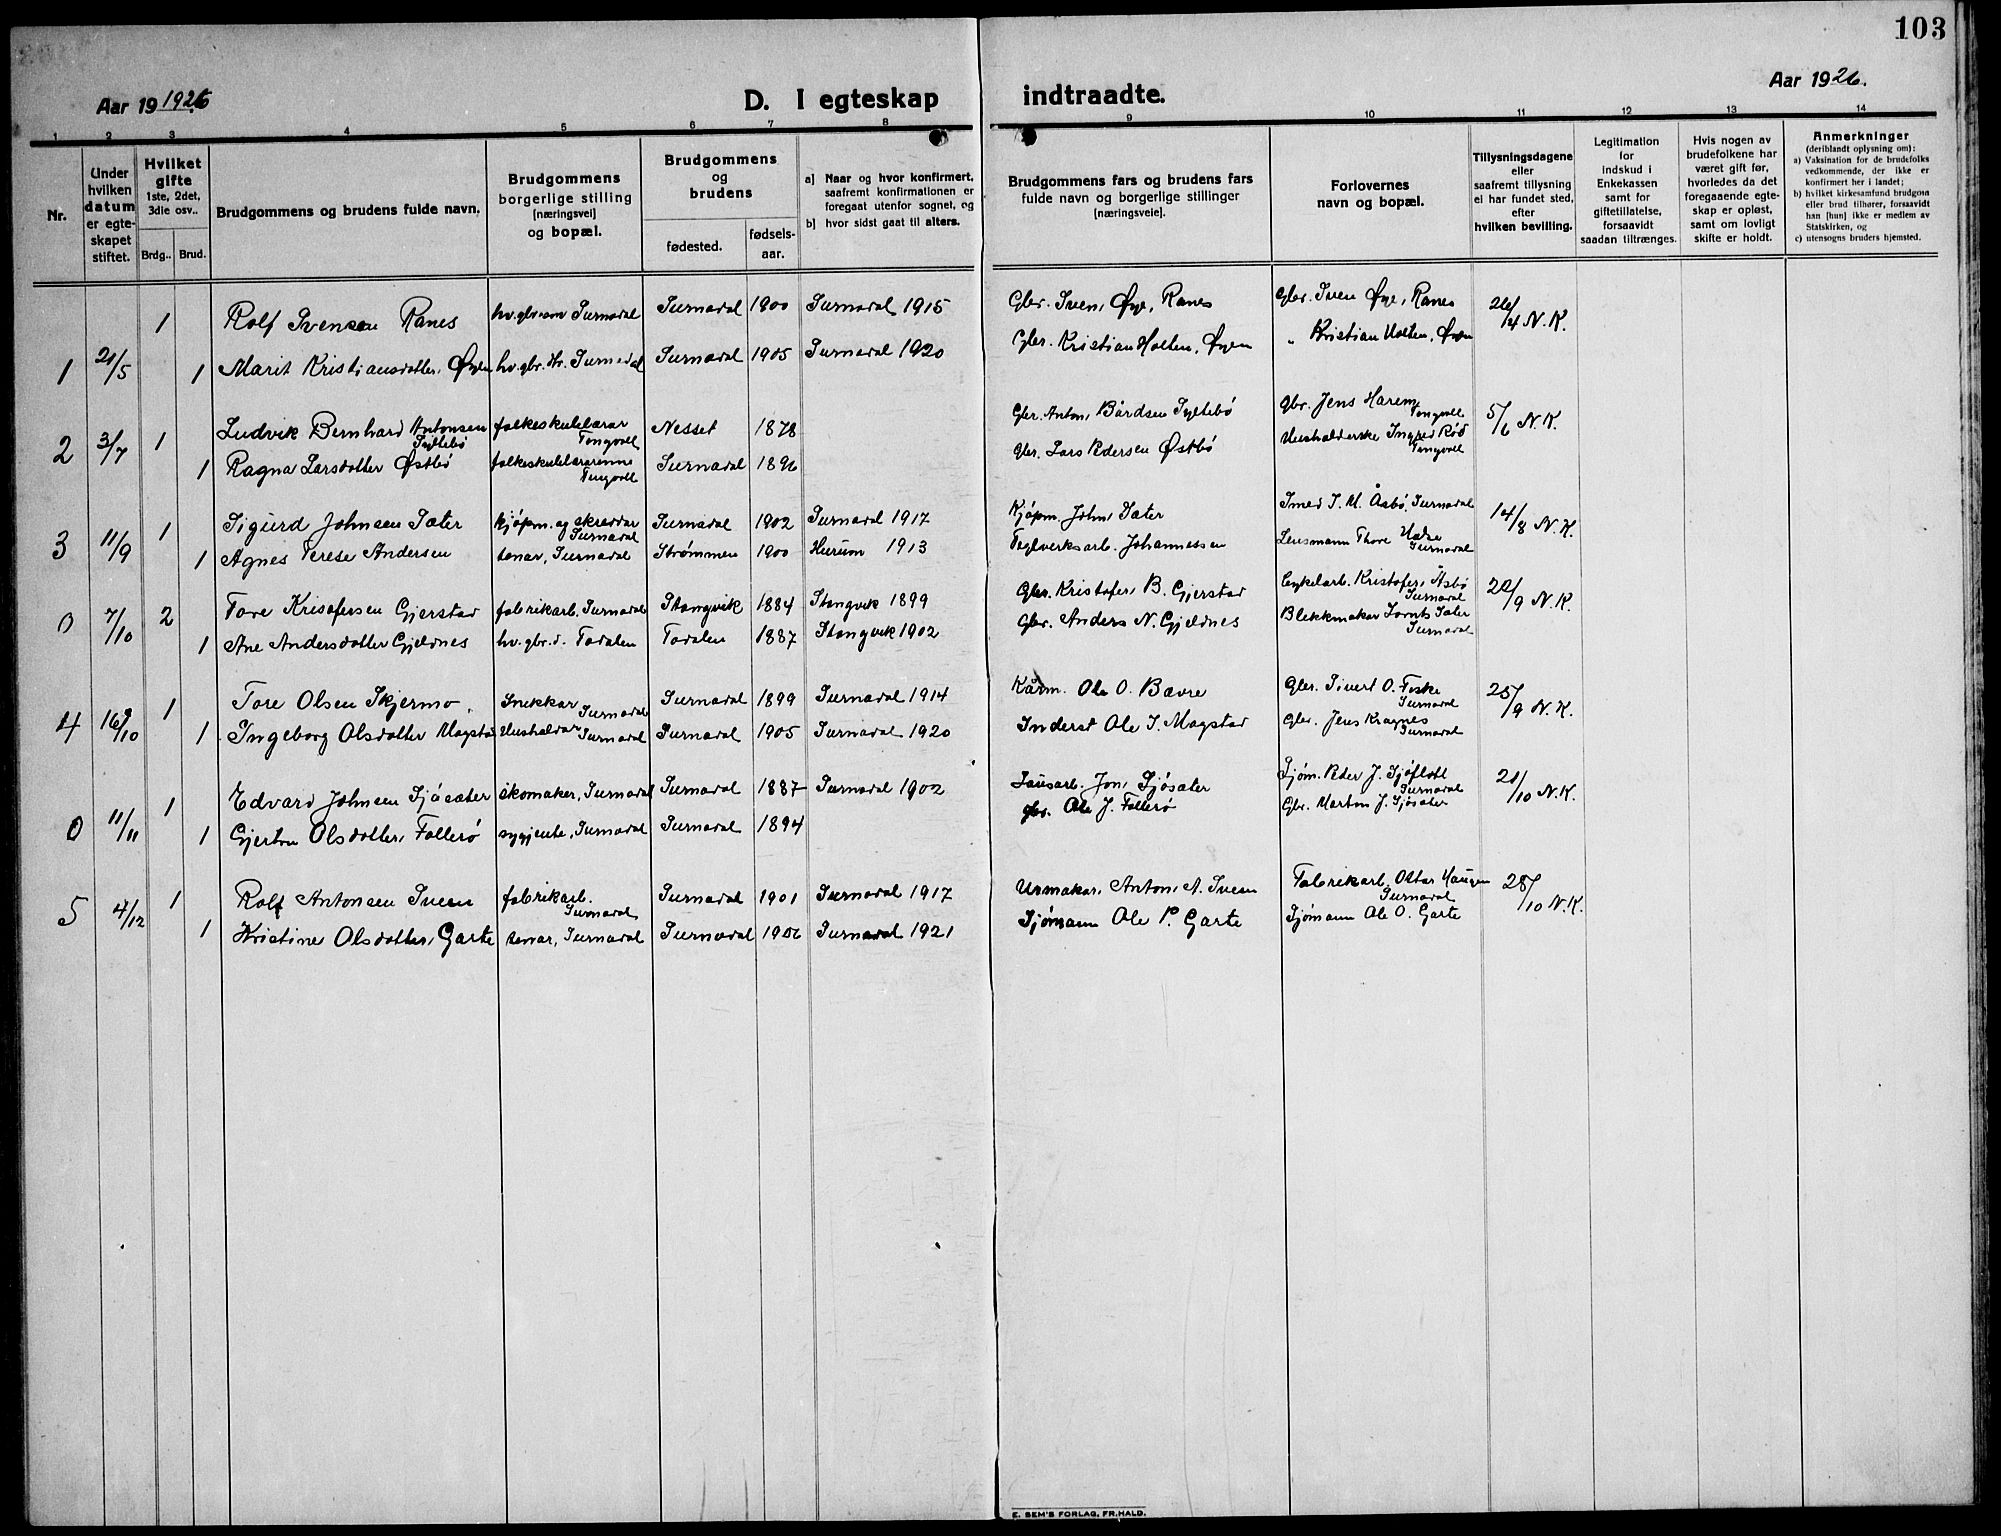 103
Aar 19 1926 D. I egteskap indtraadte. Aar 1926.
1 2 3 4 5 6 7 8 9 10 11 12 13 14
Nr.
Under hvilken datum er egteskapet stiftet.
Hvilket gifte 1ste, 2det, 3die osv..
Brdg.. Brud.
Brudgommens og brudens fulde navn.
Brudgommens borgerlige stilling [næringsvei] og bopæl.
Brudgommens og brudens
fødested. fødsels-aar.
a) Naar og hvor konfirmert, saafremt konfirmationen er foregaat utenfor sognet, og
b) hvor sidst gaat til alters.
Brudgommens fars og brudens fars fulde navn og borgerlige stillinger [næringsveie].
Forlovernes navn og bopæl.
Tillysningsdagene eller saafremt tillysning ei har fundet sted, efter hvilken bevilling.
Legitimation for Indskud i Enkekassen samt for giftetillatelse, forsaavidt saadan tiltrænges.
Hvis nogen av brudefolkene har været gift før, hvorledes da det foregaaende egteskap er opløst, samt om lovligt skifte er holdt.
Anmerkninger (deriblandt oplysning om):
a) Vaksination for de brudefolks vedkommende, der ikke er konfirmert her i landet;
b) hvilket kirkesamfund brudgom eller brud tilhører, forsaavidt han [hun] ikke er medlem av Statskirken, og
c) utensogns bruders hjemsted.
1 Rolf Svensen Ranes hv. gbr. søn Surnadal Surnadal 1900 Surnadal 1915 Gbr. Sven Øye, Ranes Gbr. Sven Øye, Ranes 26/4 N.K.
1 21/5 1 Marit Kristiansdotter Øyen hv. gbr. dtr. Surnadal Surnadal 1905 Surnadal 1920 Gbr. Kristian Holten, Øyen " Kristian Holten, Øyen
2 3/7 1 Ludvik Bernhard Antonsen Syltebø folkeskulelærar Tingvoll Nesset 1878 Gbr. Anton Bårdsen Syltebø Gbr. Jens Harem Tingvoll 5/6 N.K.
1 Ragna Larsdotter Østbø folkeskulelærarinne Tingvoll Surnadal 1896 Gbr. Lars Pedersen Østbø Husholderske Ingred Rød Tingvoll
3 11/9 1 Sigurd Johnsen Sæter kjøpm. og skreddar Surnadal Surnadal 1902 Surnadal 1917 Kjøpm. John Sæter Smed J. M. Åsbø, Surnadal 14/8 N.K.
1 Agnes Terese Andersen tenar, Surnadal Strømmen 1900 Hurum 1913 Teglverksarb. Johannessen Lensmann Thore Surnadal
0 7/10 2 Tore Kristofersen Gjerstad fabrikarb. Surnadal Stangvik 1884 Stangvik 1899 Gbr. Kristofer B. Gjerstad Cykelarb. Kristofer Åsbø Surnadal 20/9 N.K.
1 Ane Andersdotter Gjeldnes hv. gbr. d. Todalen Todalen 1887 Stangvik 1902 Gbr. Anders N. Gjeldnes Blekkmakar Lornts Sæter Surnadal
4 16/10 1 Tore Olsen Skjermo Snikkar Surnadal Surnadal 1899 Surnadal 1914 Kårm. Ole O. Bævre Gbr. Sivert O. Fiske Surnadal 25/9 N.K.
1 Ingeborg Olsdotter Mogstad Hushaldar Surnadal Surnadal 1905 Surnadal 1920 Inderst Ole I. Mogstad Gbr. Jens Kragnes Surnadal
0 11/11 1 Edvard Johnsen Sjøsæter skomaker, Surnadal Surnadal 1887 Surnadal 1902 Lausarb. Jon Sjøsæter Sjøm. Peder J. Sjøflott Surnadal 21/10 N.K.
1 Gjertru Olsdotter Follerø sygjente, Surnadal Surnadal 1894 gbr. Ole J. Follerø Gbr. Morten J. Sjøsæter
5 4/12 1 Rolf Antonsen Sveen fabrikarb. Surnadal Surnadal 1901 Surnadal 1917 Urmakar Anton A. Sveen Fabrikarb. Ottar Haugen Surnadal 25/10 N.K.
1 Kristine Olsdotter Garte tenar, Surnadal Surnadal 1906 Surnadal 1921 Sjømann Ole P. Garte Sjømann Ole O. Garte
E. SEM'S FORLAG, FR.HALD.